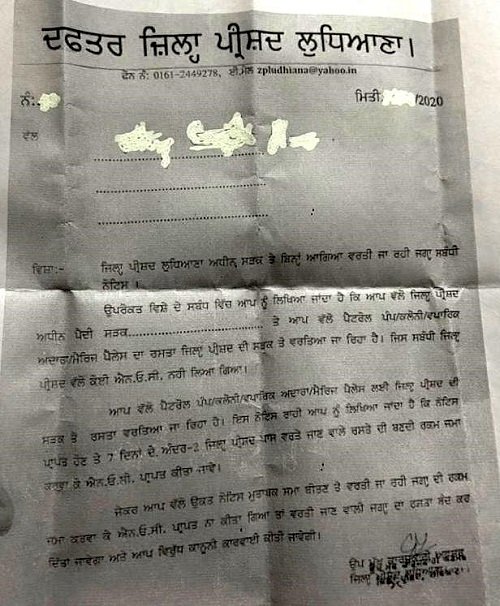 ਦਫਤਰ ਜ਼ਿਲ੍ਹਾ ਪ੍ਰੀਸ਼ਦ ਲੁਧਿਆਣਾ।
ਫੋਨ ਨੰ: 0161-2449278, ਈ.ਮੇਲ zpludhiana@yahoo.in
ਨੰ:
ਮਿਤੀ: /2020
ਵੱਲ
ਵਿਸ਼ਾ:- ਜ਼ਿਲ੍ਹਾ ਪ੍ਰੀਸ਼ਦ ਲੁਧਿਆਣਾ ਅਧੀਨ ਸੜਕ ਤੇ ਬਿਨ੍ਹਾਂ ਆਗਿਆ ਵਰਤੀ ਜਾ ਰਹੀ ਜਗ੍ਹਾ ਸਬੰਧੀ
ਨੋਟਿਸ ।
ਉਪਰੋਕਤ ਵਿਸ਼ੇ ਦੇ ਸਬੰਧ ਵਿੱਚ ਆਪ ਨੂੰ ਲਿਖਿਆ ਜਾਂਦਾ ਹੈ ਕਿ ਆਪ ਵੱਲੋਂ ਜਿਲ੍ਹਾ ਪ੍ਰੀਸ਼ਦ
ਅਧੀਨ ਪੈਂਦੀ ਸੜਕ.............................. ਤੇ ਆਪ ਵੱਲੋਂ ਪੈਟਰੋਲ ਪੰਪ/ਕਲੋਨੀ/ਵਪਾਰਿਕ
ਅਦਾਰਾ/ਮੈਰਿਜ ਪੈਲੇਸ ਦਾ ਰਸਤਾ ਜਿਲ੍ਹਾ ਪ੍ਰੀਸ਼ਦ ਦੀ ਸੜਕ ਤੇ ਵਰਤਿਆ ਜਾ ਰਿਹਾ ਹੈ। ਜਿਸ ਸਬੰਧੀ ਜਿਲ੍ਹਾ
ਪ੍ਰੀਸ਼ਦ ਵੱਲੋਂ ਕੋਈ ਐਨ.ਓ.ਸੀ. ਨਹੀ ਲਿਆ ਗਿਆ।
ਆਪ ਵੱਲੋਂ ਪੈਟਰੋਲ ਪੰਪ/ਕਲੋਨੀ/ਵਪਾਰਿਕ ਅਦਾਰਾ/ਮੈਰਿਜ ਪੈਲੇਸ ਲਈ ਜਿਲ੍ਹਾ ਪ੍ਰੀਸ਼ਦ ਦੀ
ਸੜਕ ਤੇ ਰਸਤਾ ਵਰਤਿਆ ਜਾ ਰਿਹਾ ਹੈ। ਇਸ ਨੋਟਿਸ ਰਾਹੀ ਆਪ ਨੂੰ ਲਿਖਿਆ ਜਾਂਦਾ ਹੈ ਕਿ ਨੋਟਿਸ
ਪ੍ਰਾਪਤ ਹੋਣ ਤੇ 7 ਦਿਨਾਂ ਦੇ ਅੰਦਰ-2 ਜਿਲ੍ਹਾ ਪ੍ਰੀਸ਼ਦ ਪਾਸ ਵਰਤੇ ਜਾਣ ਵਾਲੇ ਰਸਤੇ ਦੀ ਬਣਦੀ ਰਕਮ ਜਮਾ
ਕਰਵਾ ਕੇ ਐਨ.ਓ.ਸੀ. ਪ੍ਰਾਪਤ ਕੀਤਾ ਜਾਵੇ।
ਜੇਕਰ ਆਪ ਵੱਲੋਂ ਉਕਤ ਨੋਟਿਸ ਮੁਤਾਬਕ ਸਮਾ ਬੀਤਣ ਤੇ ਵਰਤੀ ਜਾ ਰਹੀ ਜਗ੍ਹਾ ਦੀ ਰਕਮ
ਜਮਾ ਕਰਵਾ ਕੇ ਐਨ.ਓ.ਸੀ. ਪ੍ਰਾਪਤ ਨਾ ਕੀਤਾ ਗਿਆ ਤਾਂ ਵਰਤੀ ਜਾਣ ਵਾਲੀ ਜਗ੍ਹਾ ਦਾ ਰਸਤਾ ਬੰਦ ਕਰ
ਦਿੱਤਾ ਜਾਵੇਗਾ ਅਤੇ ਆਪ ਵਿਰੁੱਧ ਕਾਨੂੰਨੀ ਕਾਰਵਾਈ ਕੀਤੀ ਜਾਵੇਗੀ।
ਉਪ ਮੁੱਖ ਕਾਰਜਕਾਰੀ ਅਫਸਰ
ਜਿਲ੍ਹਾ ਪ੍ਰੀਸ਼ਦ ਲੁਧਿਆਣਾ।